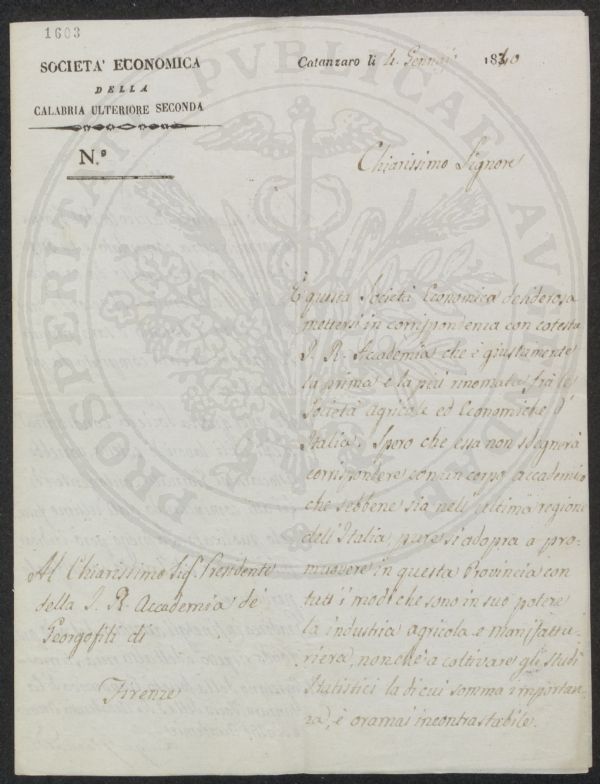 1603
SOCIETA' ECONOMICA
DELLA
CALABRIA ULTERIORE SECONDA
N.º
Catanzaro li 4 Gennajo 1840
Chiarissimo Signore
È questa Società Economica desiderosa
mettersi in corrispondenza con cotesta
I. R. Accademia che è giustamente
la prima e la più rinomata frà le
Società agricole ed Economiche d'
Italia. Spero che essa non sdegnerà
corrispondere con un corpo accademico
che sebbene sia nell'ultima regione
dell'Italia, pure si adopra a pro=
muovere in questa Provincia con
tutt'i modi che sono in suo potere
la industria agricola e manifattu=
riera, nonchè a coltivare gli studî
Statistici la di cui somma importan=
za, è oramai incontrastabile.
Al Chiarissimo Sig. Presidente
della I. R. Accademia de'
Georgofili di
Firenze
PROSPERITATI PUBLICAE AUGENDAE